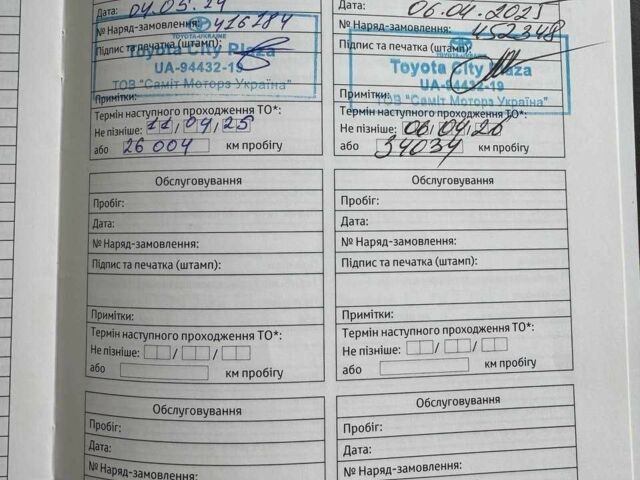 Дата: 04.05.24
№ Наряд-замовлення: 416284
TOYOTA-UKRAINE
Підпис та печатка (штамп):
Toyota City Plaza
UA-94432-19
ТОВ "Саміт Моторз Україна"
Примітки:
Термін наступного проходження ТО*:
Не пізніше: 11/04/25
або 26 004 км пробігу
Дата: 06.04.2025
№ Наряд-замовлення: 452348
Підпис та печатка (штамп):
Toyota City Plaza
UA-94432-19
ТОВ "Саміт Моторз Україна"
Примітки:
Термін наступного проходження ТО*:
Не пізніше: 06/04/26
або 34034 км пробігу
Обслуговування
Пробіг:
Дата:
№ Наряд-замовлення:
Підпис та печатка (штамп):
Примітки:
Термін наступного проходження ТО*:
Не пізніше: / /
або км пробігу
Обслуговування
Пробіг:
Дата:
№ Наряд-замовлення:
Підпис та печатка (штамп):
Примітки:
Термін наступного проходження ТО*:
Не пізніше: / /
або км пробігу
Обслуговування
Пробіг:
Дата:
№ Наряд-замовлення:
Обслуговування
Пробіг:
Дата:
№ Наряд-замовлення: